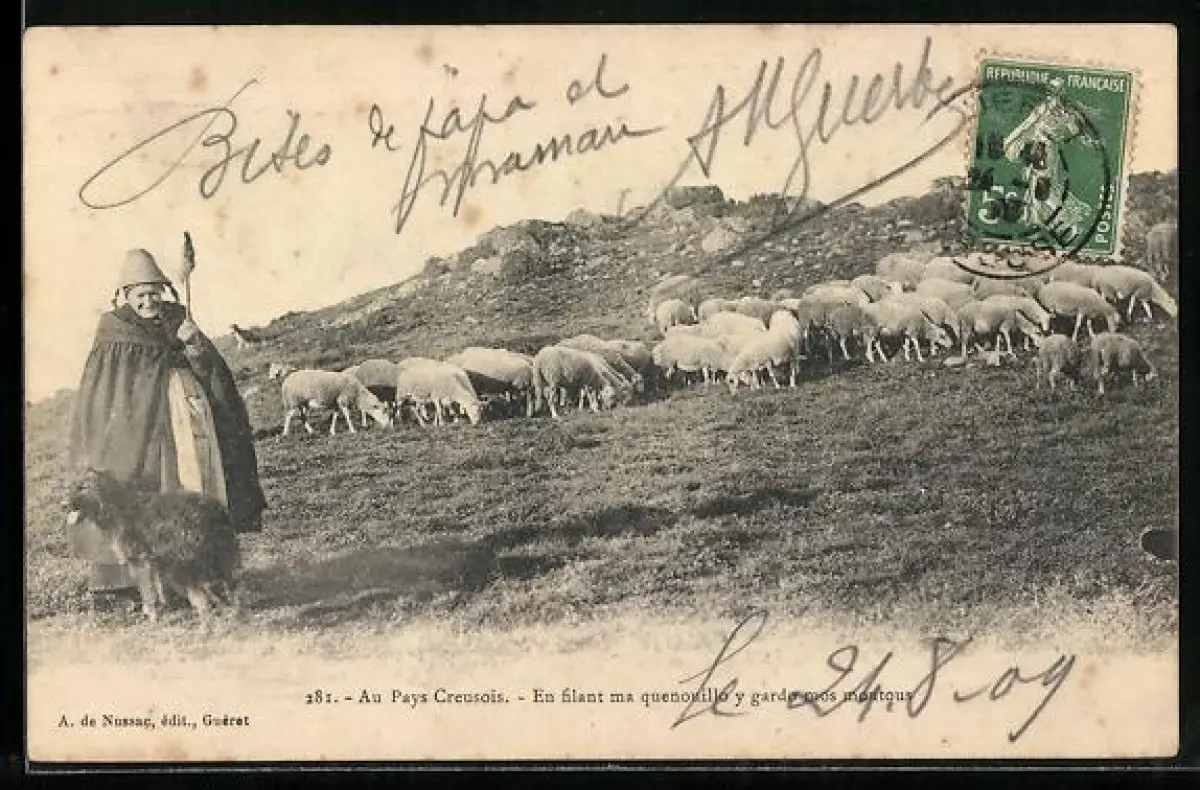 Bises de papa et
maman A Huguerbe
REPUBLIQUE FRANÇAISE
5c
POSTES
CREUSE
281. - Au Pays Creusois. - En filant ma quenouillo y gardo mos moutous
Le 21-8-09
A. de Nussac, édit., Guéret